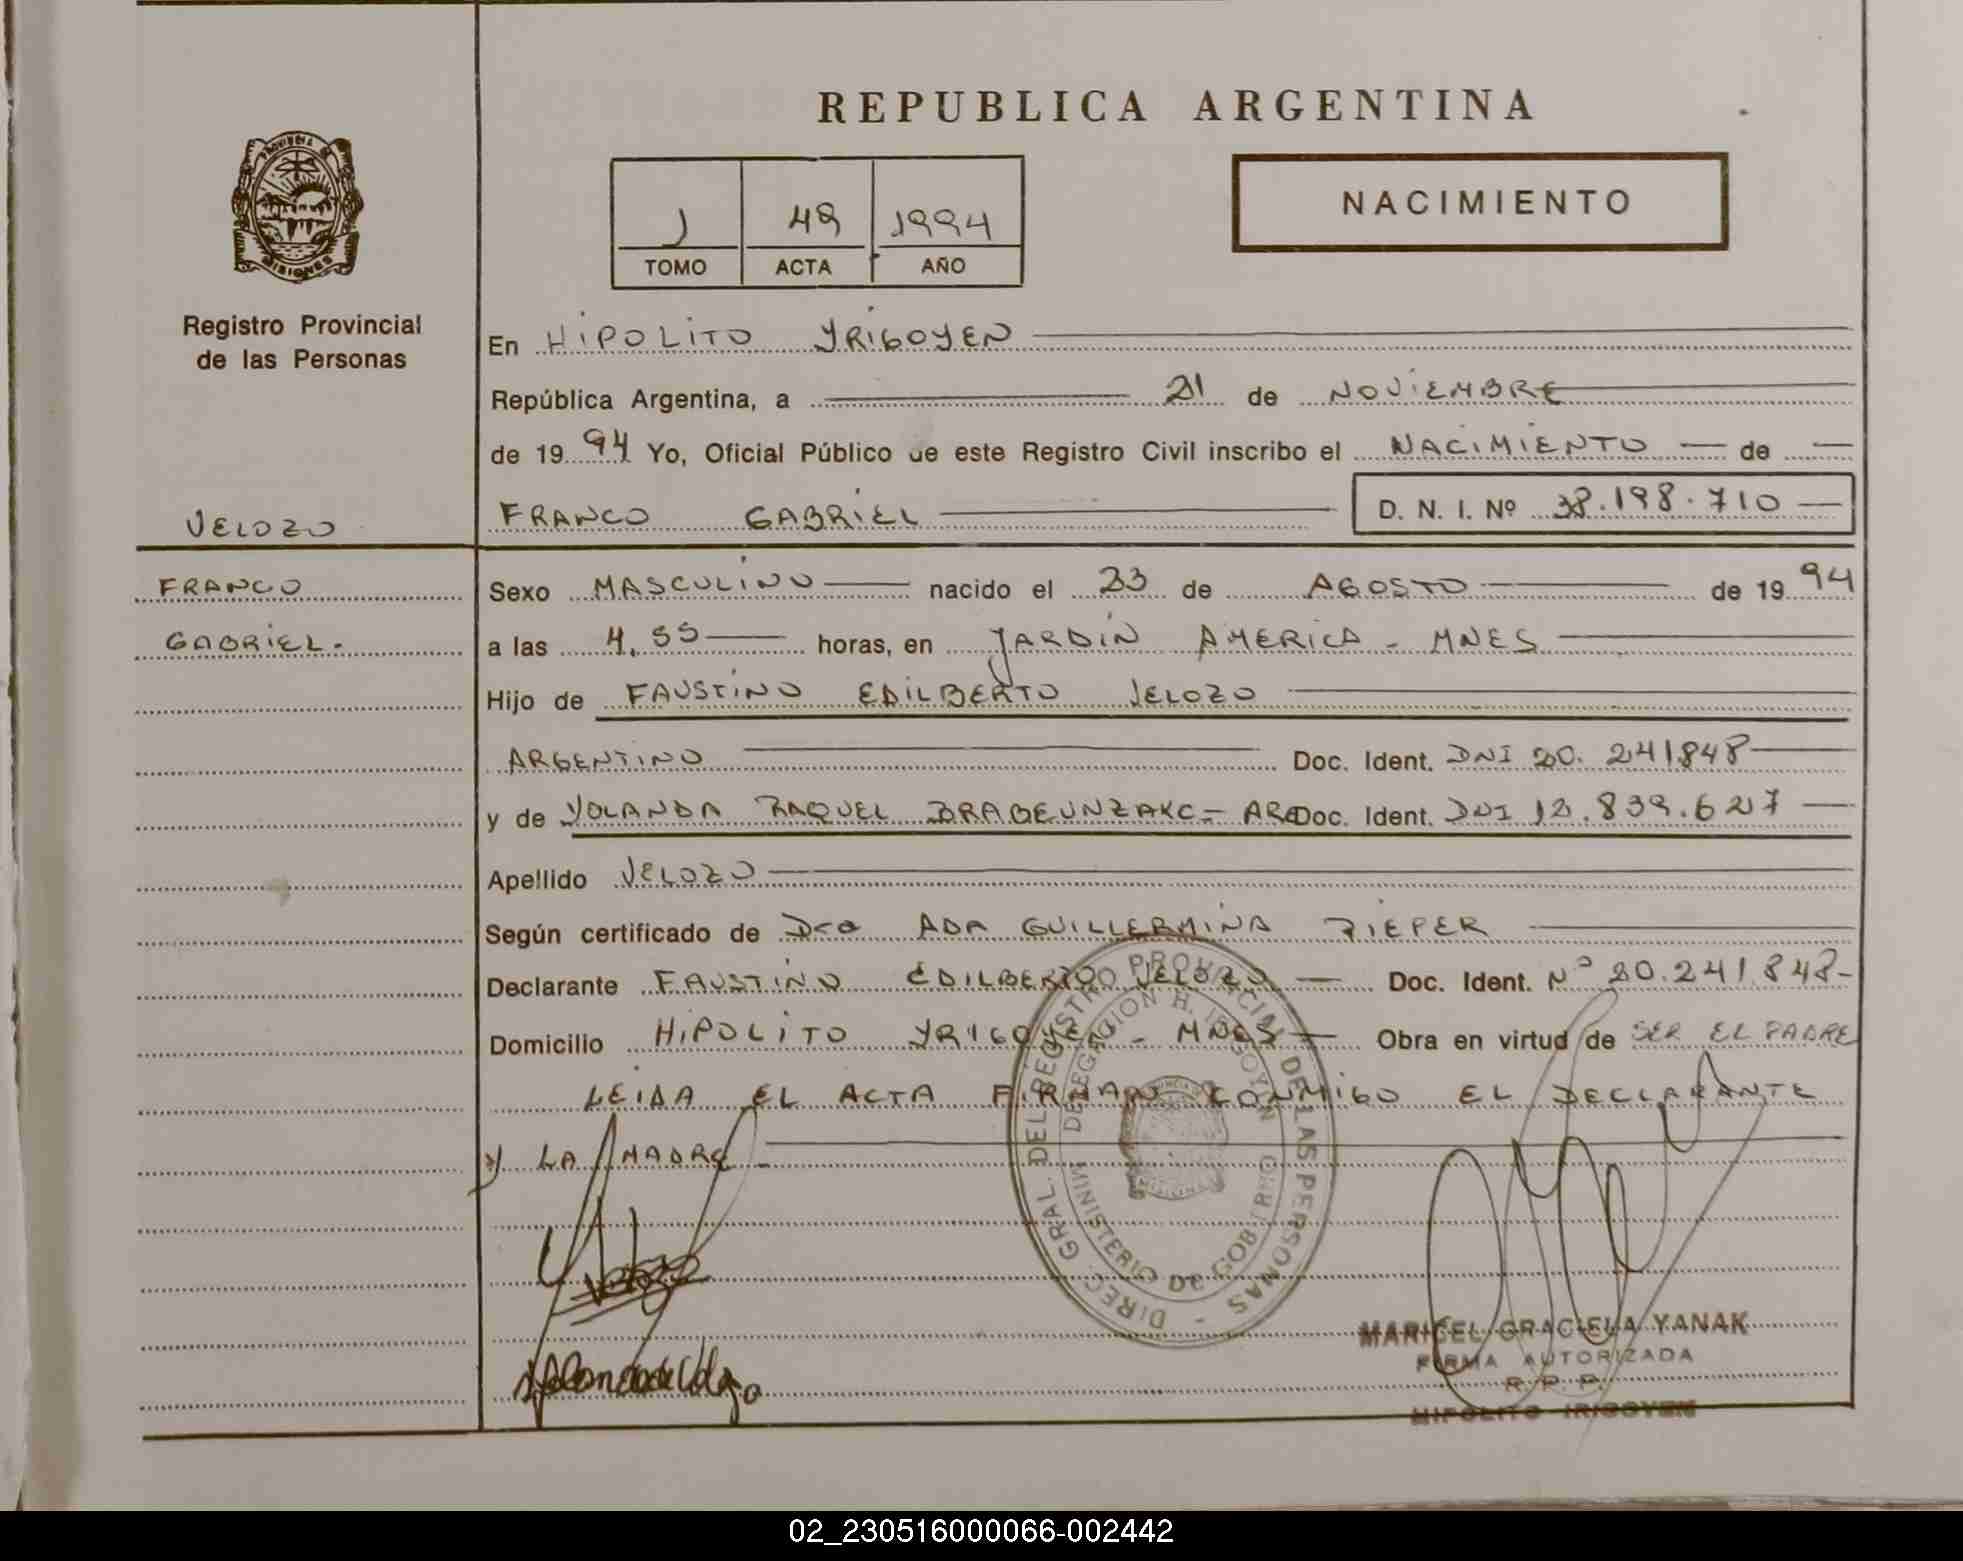 REPUBLICA ARGENTINA
PROVINCIA DE
MISIONES
1 49 1994
TOMO ACTA AÑO
NACIMIENTO
Registro Provincial
de las Personas
VELOZO
FRANCO
GABRIEL.
En HIPOLITO YRIGOYEN
República Argentina, a 21 de NOVIEMBRE
de 1994 Yo, Oficial Público de este Registro Civil inscribo el NACIMIENTO de
FRANCO GABRIEL D. N. I. Nº 38.198.710
Sexo MASCULINO nacido el 23 de AGOSTO de 1994
a las 4,55 horas, en JARDIN AMERICA - MNES
Hijo de FAUSTINO EDILBERTO VELOZO
ARGENTINO Doc. Ident. DNI 20.241848
y de YOLANDA RAQUEL - ARG Doc. Ident. DNI .839.627
Apellido VELOZO
Según certificado de Dra ADA GUILLERMINA
Declarante FAUSTINO EDILBERTO VELOZO Doc. Ident. Nº 20.241.848-
Domicilio HIPOLITO YRIGOYEN - MNES Obra en virtud de SER EL PADRE
LEIDA EL ACTA FIRMAN CONMIGO EL DECLARANTE
y LA MADRE
DIREC. GRAL. DEL REGISTRO PROVINCIAL DE LAS PERSONAS -
DELEGACION H. IRIGOYEN
MINISTERIO DE GOBIERNO
MISIONES
MARICEL GRACIELA YANAK
FIRMA AUTORIZADA
R. P. P.
HIPOLITO IRIGOYEN
02_230516000066-002442